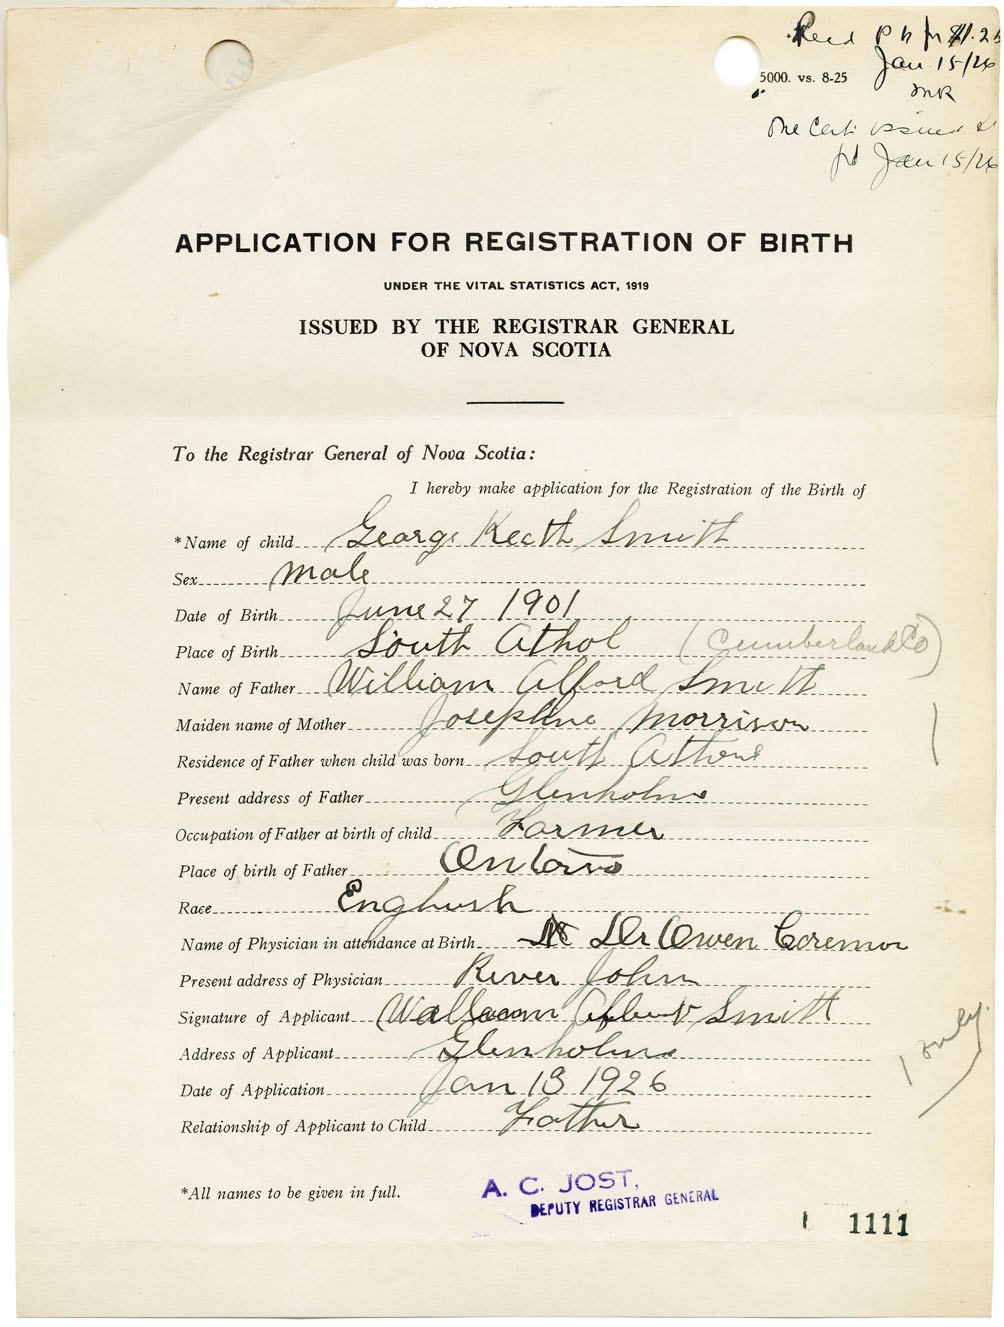 Recd P n for $1.25
5000. vs. 8-25
Jan. 15/26
MR
One Cert. issued
Jan 15/26
APPLICATION FOR REGISTRATION OF BIRTH
UNDER THE VITAL STATISTICS ACT, 1919
ISSUED BY THE REGISTRAR GENERAL
OF NOVA SCOTIA
To the Registrar General of Nova Scotia:
I hereby make application for the Registration of the Birth of
*Name of child George Keith Smith
Sex Male
Date of Birth June 27 1901
Place of Birth South Athol (Cumberland Co)
Name of Father William Alford Smith
Maiden name of Mother Josephine Morrison
Residence of Father when child was born South Athol
Present address of Father Glenholme
Occupation of Father at birth of child Farmer
Place of birth of Father Ontario
Race English
Name of Physician in attendance at Birth Dr Owen
Present address of Physician River John
Signature of Applicant William Smith
Address of Applicant Glenholme
1 only.
Date of Application Jan 13 1926
Relationship of Applicant to Child Father
*All names to be given in full.
A. C. JOST,
DEPUTY REGISTRAR GENERAL
1111